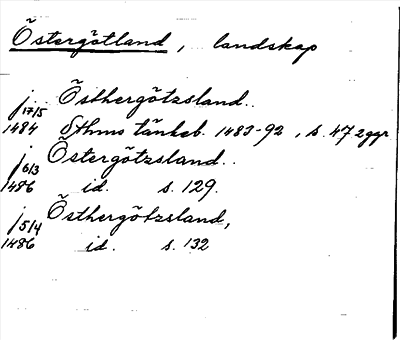 Östergötland, landskap
j 17/5 Östhergötzsland..
1484 Sthms tänkeb. 1483-92, s. 47 2ggr
j 6/3 Östergötzsland..
1486 id. s. 129.
j 5/4 Östhergötzsland,
1486 id. s. 132